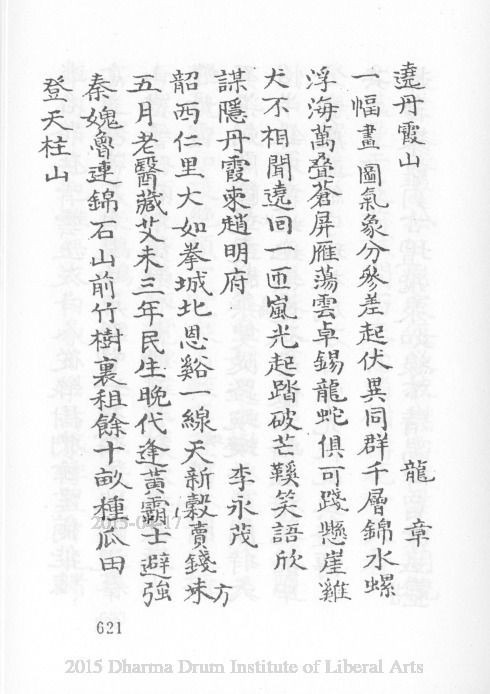 遶丹霞山　龍章
一幅畫圖氣象分參差起伏異同群千層錦水螺
浮海萬叠蒼屏雁蕩雲卓錫龍蛇俱可踐懸崖雞
犬不相聞遶回一匝嵐光起踏破芒鞵笑語欣
謀隱丹霞柬趙明府　李永茂
韶西仁里大如拳城北恩谿一線天新穀賣錢未方
五月老醫藏艾未三年民生晚代逢黃霸士避強
秦媿魯連錦石山前竹樹裏租餘十畝種瓜田
登天柱山
621
2015-03-17
2015 Dharma Drum Institute of Liberal Arts